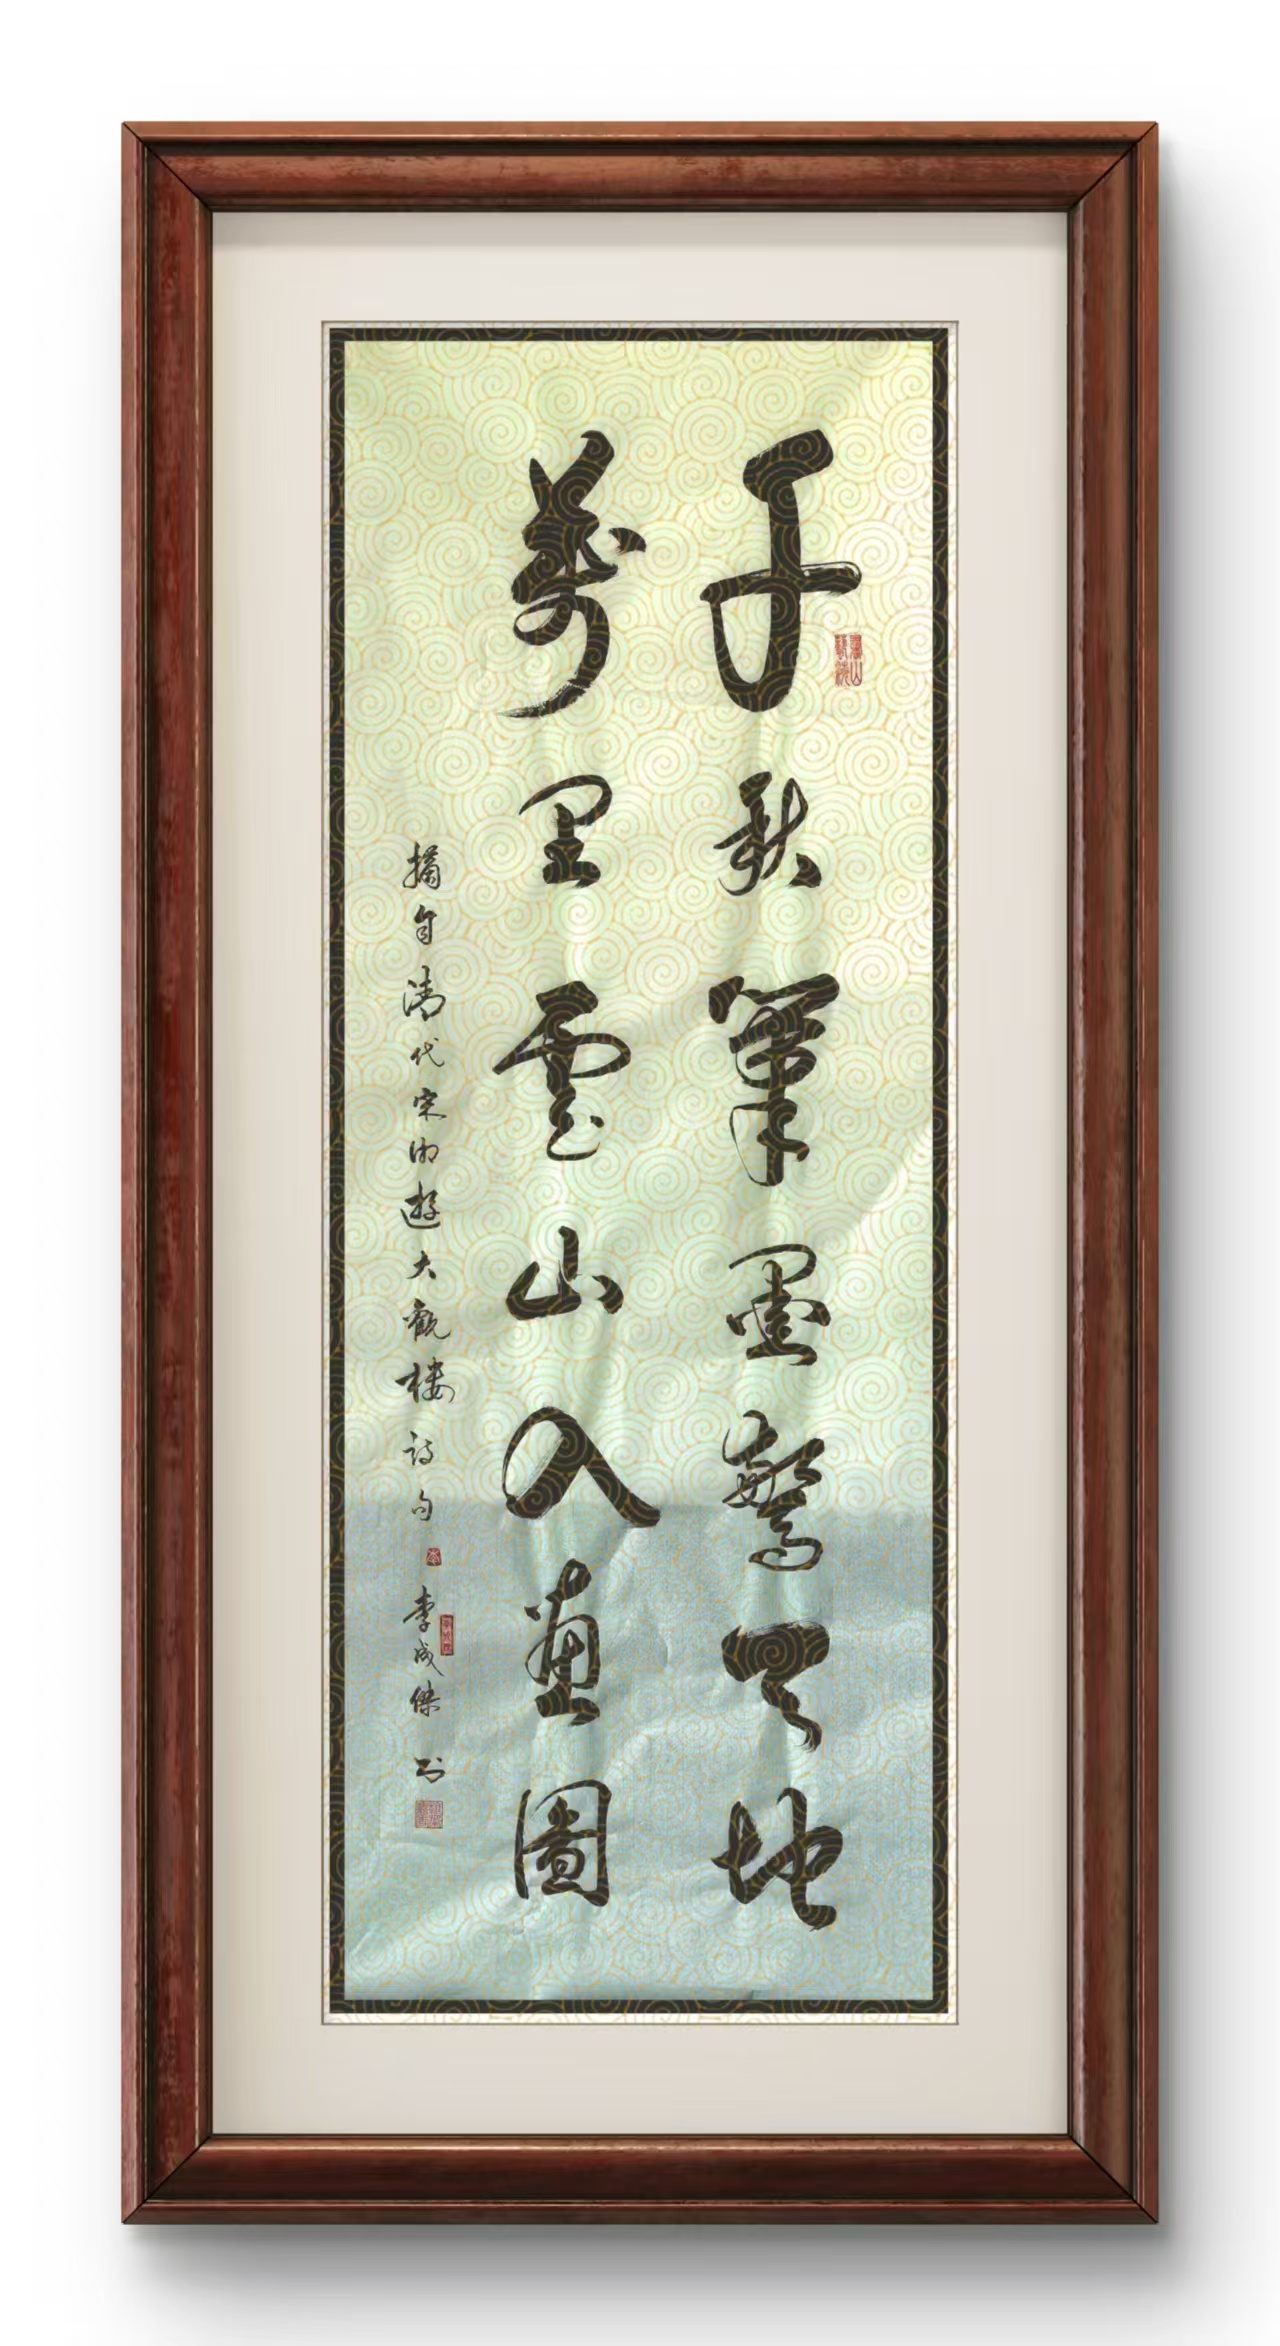 千秋筆墨驚天地
萬里雲山入畫圖
摘自清代宋湘遊大觀楼诗句
李成傑书